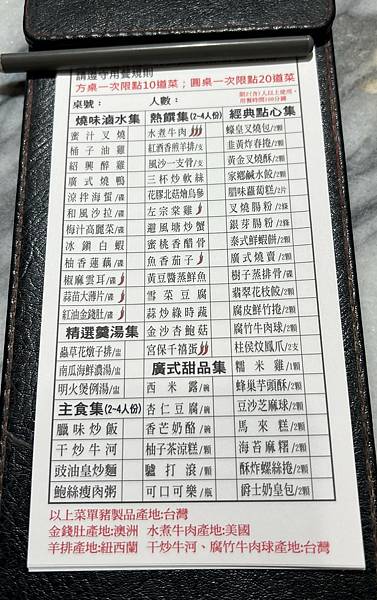 請遵守用餐規則
方桌一次限點10道菜；圓桌一次限點20道菜
桌號： 人數：
用餐時間100分鐘
燒味滷水集
蜜汁叉燒
桶子油雞
紹興醉雞
廣式燒鴨
涼拌海蜇/碟
和風沙拉/碟
梅汁高麗菜/碟
冰鎮白蝦
柚香蓮藕/碟
椒麻雲耳/碟
蒜苗大薄片/碟
紅油金錢肚/碟
精選羹湯集
蟲草花燉子排/盅
南瓜海鮮濃湯/盅
明火煲例湯/盅
主食集(2~4人份)
臘味炒飯
干炒牛河
豉油皇炒麵
鮑絲瘦肉粥
熱饌集(2~4人份)
水煮牛肉
紅酒香煎羊排/支
風沙一支骨/支
三杯炒軟絲
花膠北菇燴烏參
左宗棠雞
避風塘炒蟹
蜜桃香醋骨
魚香茄子
黃豆醬蒸鮮魚
雪菜豆腐
蒜炒綠時蔬
金沙杏鮑菇
宮保千禧蛋
廣式甜品集
西米露/碗
杏仁豆腐/碗
香芒奶酪/碗
柚子茶涼糕/碗
驢打滾/顆
可口可樂/瓶
經典點心集
蠔皇叉燒包/2顆
韭黃炸春捲/2顆
黃金叉燒酥/2顆
家鄉鹹水餃/2顆
腊味蘿蔔糕/2片
叉燒腸粉/2條
銀芽腸粉/2條
泰式鮮蝦餅/2顆
廣式燒賣/2顆
樹子蒸排骨/碟
翡翠花枝餃/2顆
腐皮鮮竹捲/2顆
腐竹牛肉球/2顆
柱侯炆鳳爪/2支
糯米雞/1顆
蜂巢芋頭酥/2顆
豆沙芝麻球/2顆
馬來糕/2顆
海苔麻糬/2顆
酥炸螺絲捲/2顆
爵士奶皇包/2顆
以上菜單豬製品產地:台灣
金錢肚產地:澳洲 水煮牛肉產地:美國
羊排產地:紐西蘭 干炒牛河、腐竹牛肉球產地:台灣